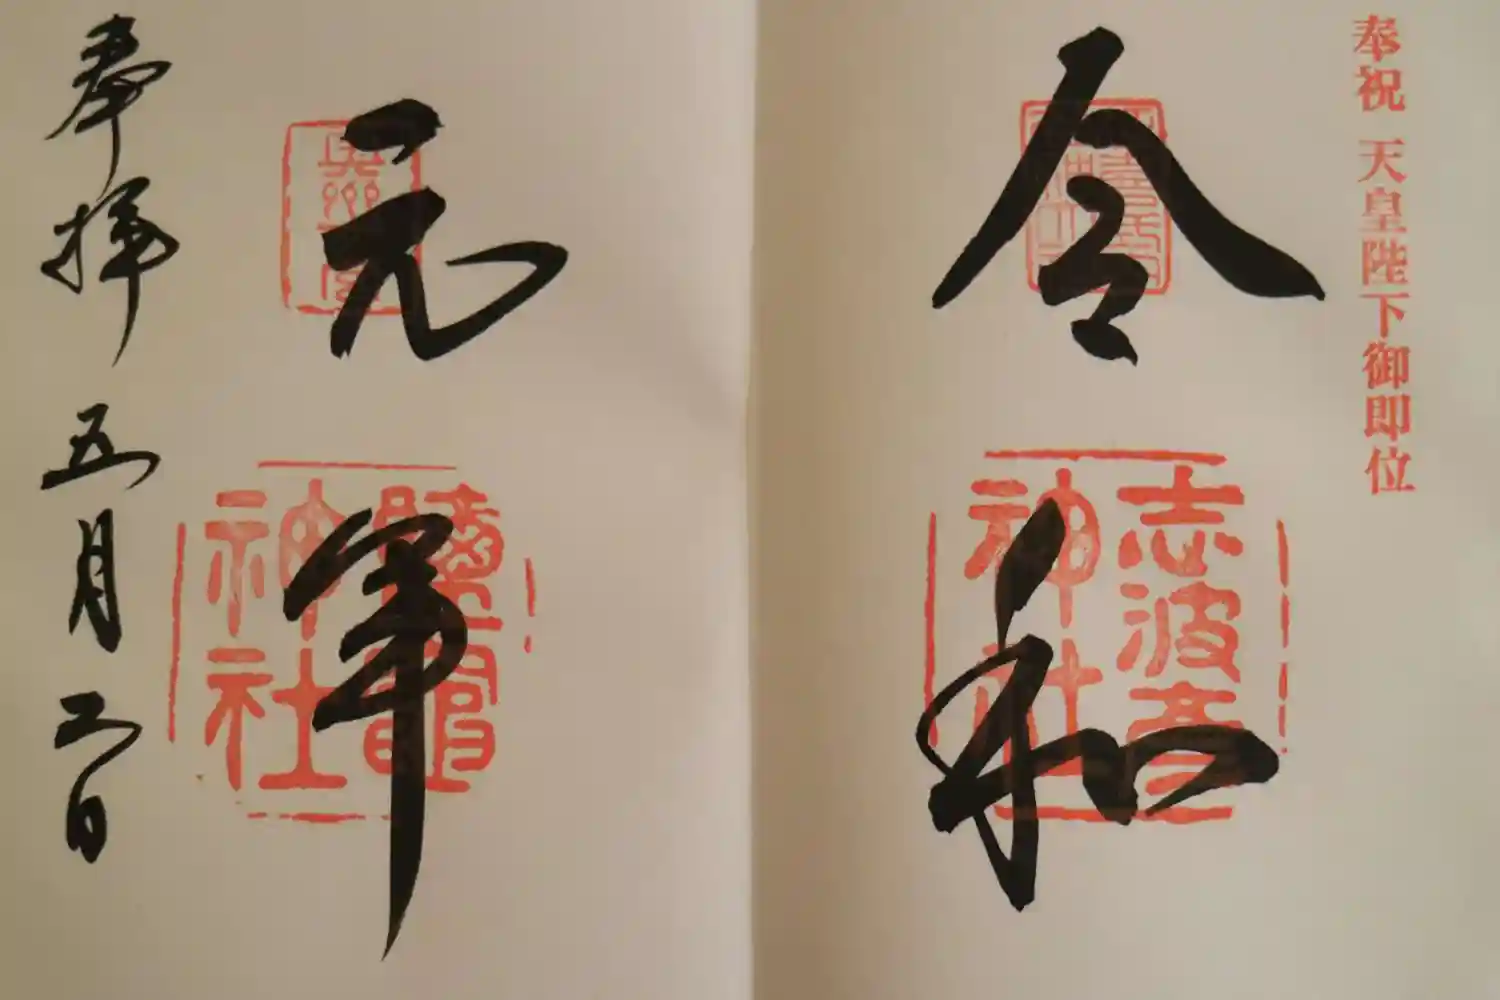 奉祝 天皇陛下御即位
令和
志波彦神社
元年
奥州一宮
鹽竈神社
奉拝 五月二日